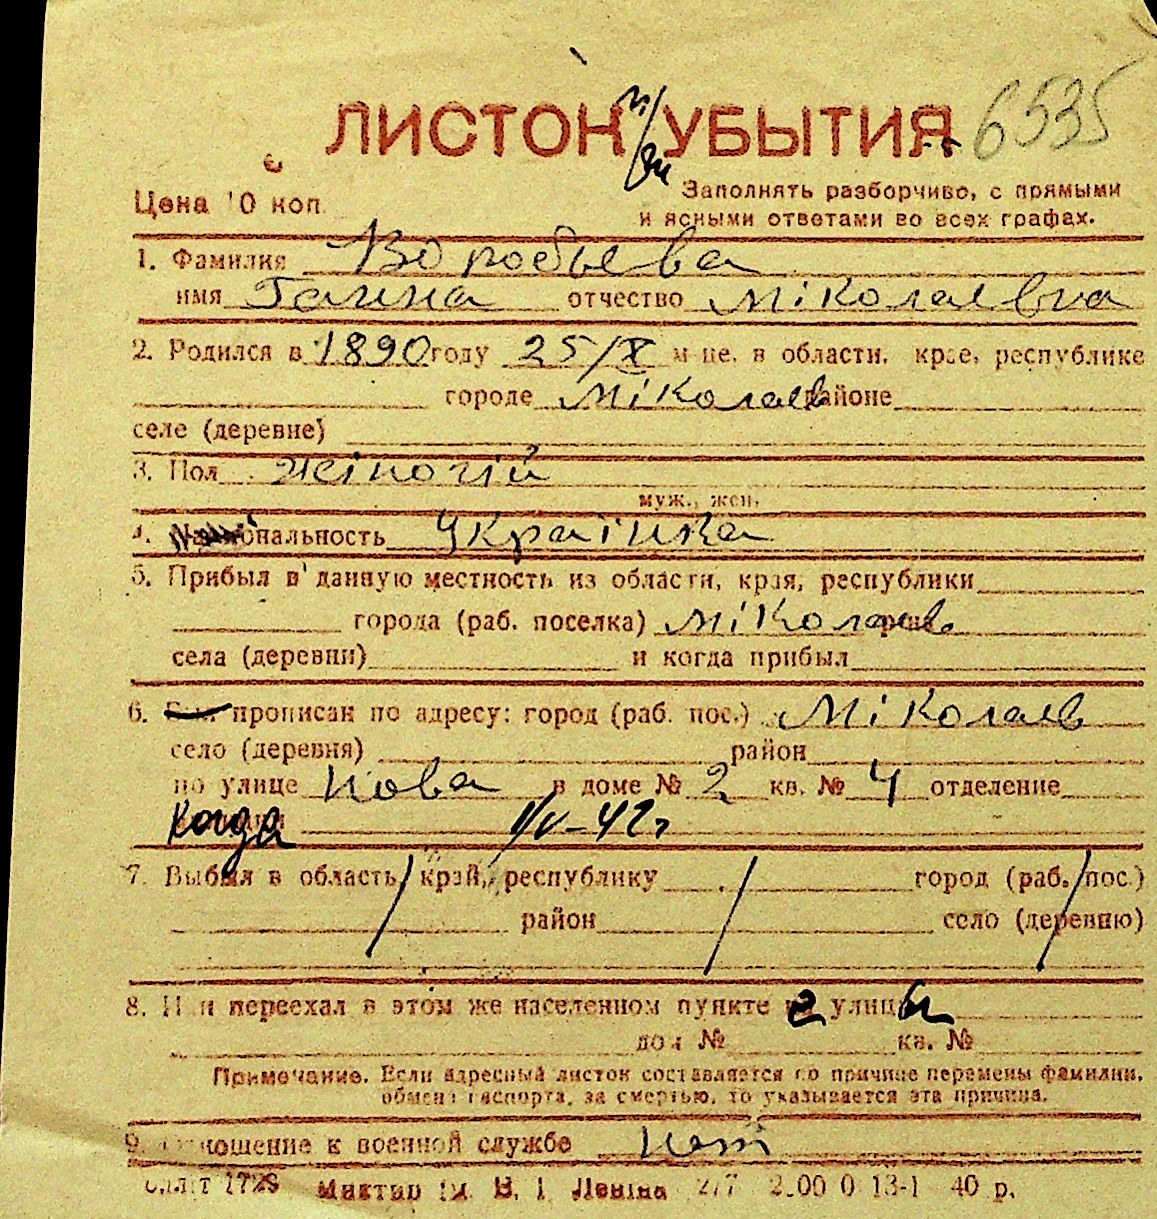 ЛИСТОК УБЫТИЯ 6535
Цена 10 коп.
Заполнять разборчиво, с прямыми
и ясными ответами во всех графах.
1. Фамилия Воробьева
имя Галина отчество Міколаевна
2. Родился в 1890 году 25/X м-це, в области, крае, республике
городе Міколаев районе
селе (деревне)
3. Пол жіночій
муж., жен.
4. Национальность Українка
5. Прибыл в данную местность из области, края, республики
города (раб. поселка) Міколаев
села (деревни) и когда прибыл
6. прописан по адресу: город (раб. пос.) Міколаев
село (деревня) район
по улице Нова в доме № 2 кв. № 4 отделение
Когда 1/V-42 г
7. Выбыл в область, край, республику город (раб. пос.)
район село (деревню)
8. Или переехал в этом же населенном пункте улиц
дом № кв. №
Примечание. Если адресный листок составляется по причине перемены фамилии,
обмена паспорта, за смертью, то указывается эта причина.
9. Отношение к военной службе нет
1729 им. В. І. Леніна 277 13-1 40 р.